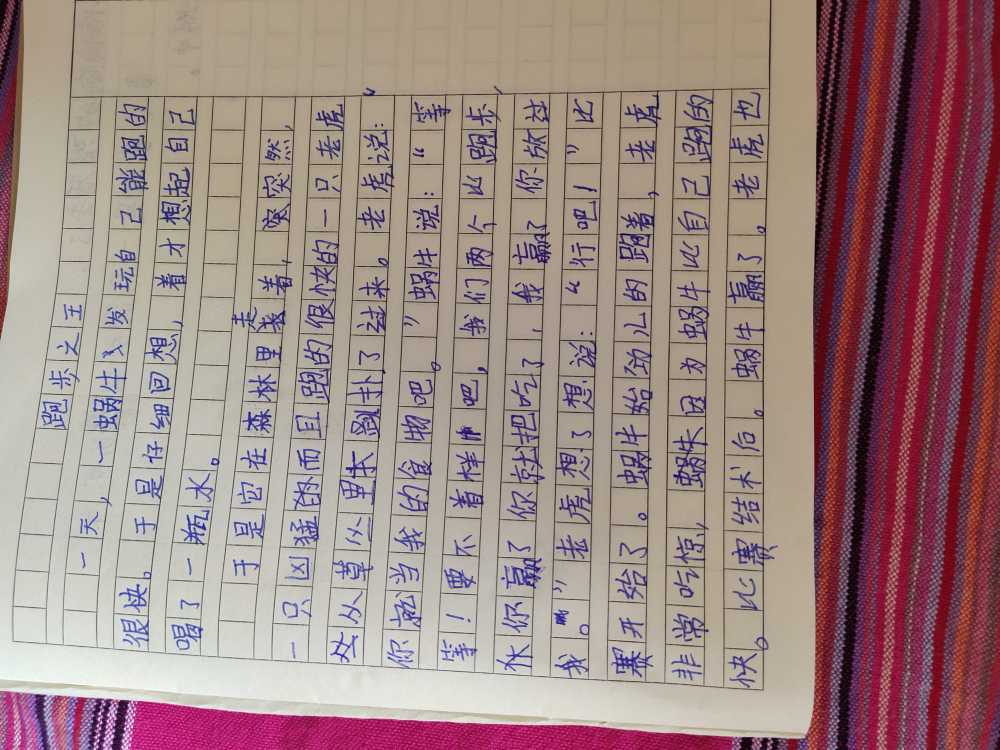 跑步之王
一天，一蜗牛发玩自己能跑的
很快。于是仔细回想，着才想起自己
喝了一瓶水。
于是它在森林里走着，突突然，
一只凶猛的而且跑的很快的一只老虎
处从草丛里扑了过来。老虎说：“
你就当我的食物吧。”蜗牛说：“等
等！要不着样吧，我们两个比跑步，
你赢了你就把吃了，我赢了你放过
我。”老虎想了想说：“行吧！”比
赛开始了。蜗牛始劲儿的跑着，老虎
非常吃惊，蜗牛因为蜗牛比自己跑的
快。比赛结术后。蜗牛赢了。老虎也